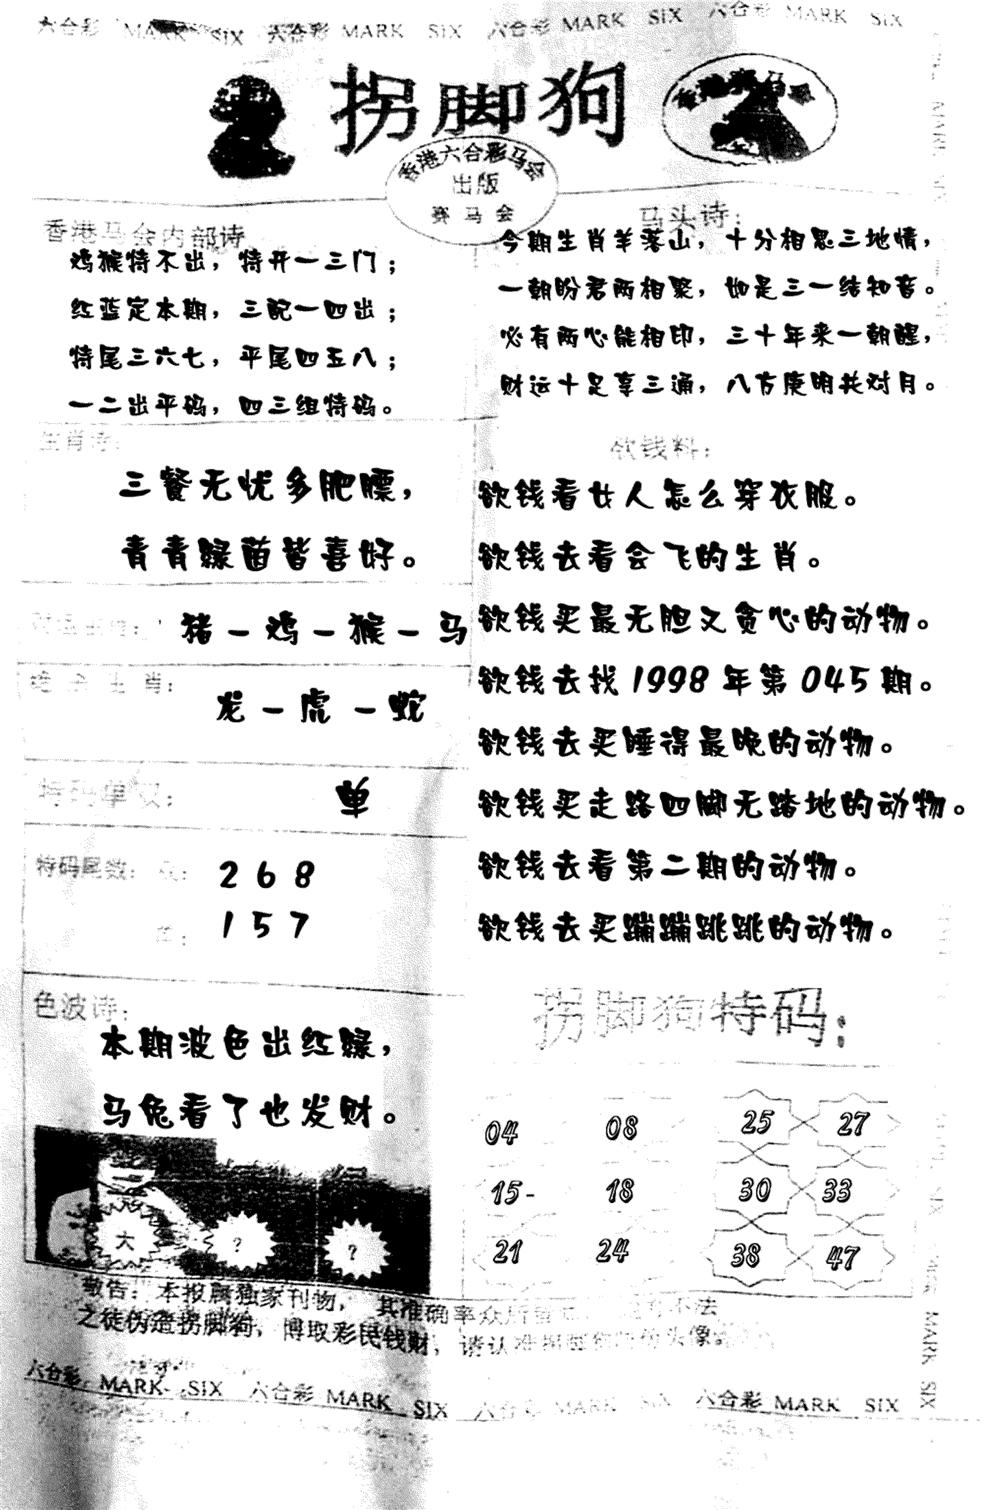 六合彩 MARK SIX 六合彩 MARK SIX 六合彩 MARK SIX 六合彩 MARK SIX
拐脚狗
香港赛马会
香港六合彩马会
出版
赛马会
香港马会内部诗
鸡猴特不出，特开一三门；
红蓝定本期，三配一四出；
特尾三六七，平尾四五八；
一二出平码，四三组特码。
马头诗：
今期生肖羊落山，十分相思三地情，
一朝盼君两相聚，如是三一结知音。
必有两心能相印，三十年来一朝醒，
财运十足享三通，八方庚明共对月。
生肖诗：
三餐无忧多肥膘，
青青绿茵皆喜好。
猪－鸡－猴－马
绝杀生肖：
龙－虎－蛇
特码单双：
单
特码尾数：双：
268
单：
157
色波诗：
本期波色出红绿，
马兔看了也发财。
大 ? ?
欲钱料：
欲钱看女人怎么穿衣服。
欲钱去看会飞的生肖。
欲钱买最无胆又贪心的动物。
欲钱去找1998年第045期。
欲钱去买睡得最晚的动物。
欲钱买走路四脚无踏地的动物。
欲钱去看第二期的动物。
欲钱去买蹦蹦跳跳的动物。
拐脚狗特码：
04 08 25 27
15- 18 30 33
21 24 38 47
敬告：本报属独家刊物，其准确率众所 不法
之徒伪造拐脚狗，博取彩民钱财，请认准拐脚狗 头像
六合彩 MARK SIX 六合彩 MARK SIX 六合彩 MARK SIX 六合彩 MARK SIX
MARK SIX
MARK SIX